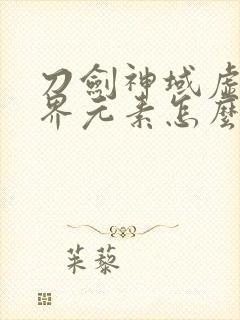 刀劍神域虛
界元素怎麼
茱藜